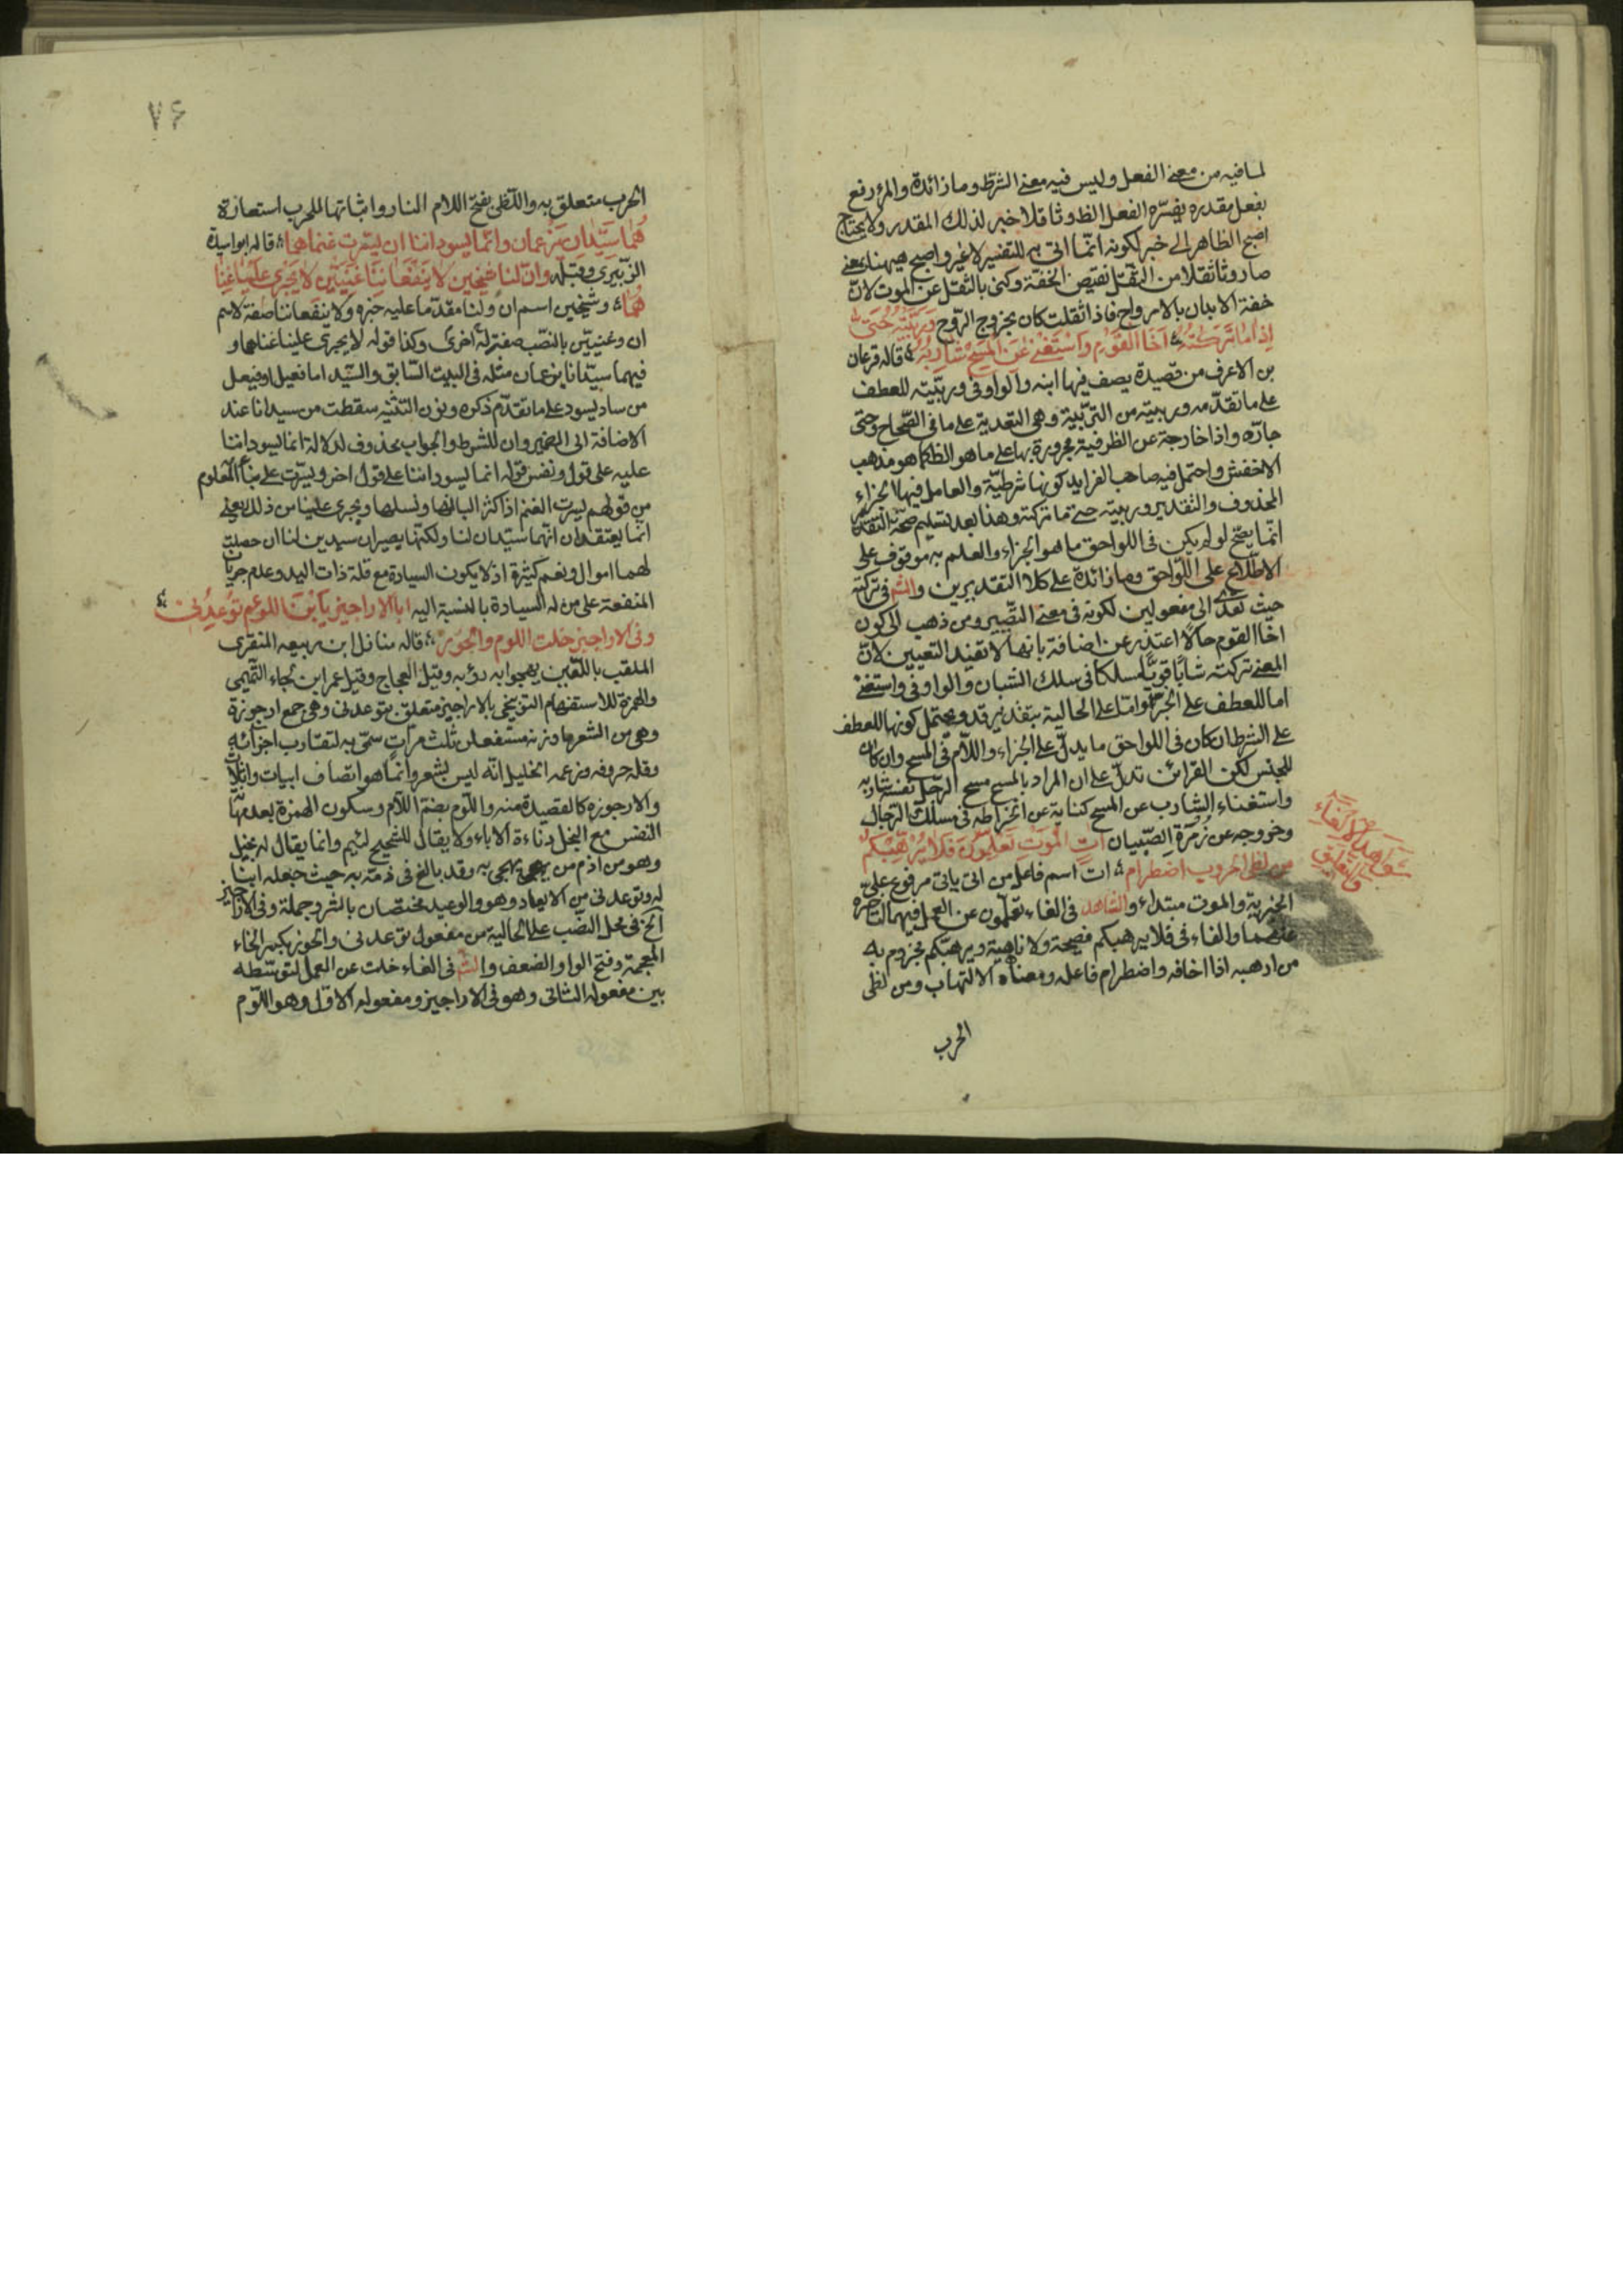 لما فيه من معنى الفعل وليس فيه معنى الشرط وما زائدة والمرء رفع
بفعل مقدر يفسّره الفعل الظ وثاقلا خبر لذلك المقدر ولا يحتاج
اصبح الظاهر الى خبر لكونه انّما اتى به للتفسير لا غير واصبح ههنا بمعنى
صار وثاقلا من الثقل نقيض الخفّة وكنى بالثقل عن الموت لانّ
خفة الابدان بالارواح فاذا ثقلت كان بخروج الرّوح وَرَبَّيْتُه حَتّى
اِذا مَا تَركتُهُ اَخَا القَوْمِ وَاسْتَغْنى عَنِ المَسْحِ شارِبُهُ قاله فرعان
بن الاعرف من قصيدة يصف فيها ابنه والواو فى وربّيته للعطف
على ما تقدّمه وربيته من التربية وهى التعدية على ما فى الصّحاح وحتى
جارّه واذا خارجة عن الظرفية مجرورة بها على ما هو الظ كما هو مذهب
الاخفش واحتمل فيه صاحب الفرايد كونها شرطيّة والعامل فيها الجزاء
المحذوف والتقدير وربيته حتى ما تركته وهذا بعد تسليم صحّة التقدير
انّما يصحّ لو لم يكن فى اللواحق ما هو الجزاء والعلم به موقوف على
الاطّلاع على اللّواحق وما زائدة على كلا التقديرين والشّم فى تركته
حيث تعدّى الى مفعولين لكونه فى معنى التصّيير ومن ذهب الى كون
اخا القوم حالًا اعتذر عن اضافة بانها لا تفيد التعيين لانّ
المعنى تركته شابًّا قويًّا مسلكا فى سلك الشبان والواو فى واستغنى
اما للعطف على الجزء وامّا على الحالية بتقدير قد ويحتمل كونها للعطف
على الشرط ان كان فى اللواحق ما يدلّ على الجزاء واللّام فى المسح وان كان
للجنس لكن القرائن تدلّ على ان المراد بالمسح مسح الرّجل نفسه شاربه
واستغناء الشارب عن المسح كناية عن انخراطه فى مسلك الرّجال
وخروجه عن زُمرَة الصّبيان اتٍ المَوْتِ تَعْلَمُونَ فَلا يُرْهِبْكُم
من لظى الحروب اضطرام ات اسم فاعل من اتى ياتى مرفوع على
الخبرية والموت مبتداء والشاهد فى الغاء تعلمون عن العمل فيهما لتاخره
عنهما والفاء فى فلا يرهبكم فصيحة ولا ناهية ويرهبكم مجزوم به
من ارهبه اذا اخافه واضطرام فاعله ومعناه الالتهاب ومن لظى
الحرب
٧۶
الحرب متعلق به واللّظى بفتح اللام النار واثباتها للحرب استعارة
هُما سَيِّدانا يَزعمان وانّما يسوداننا ان يَسّرت غنماهما قاله ابو اسيدة
الزّبيرى وقبله وانّ لنا شيخين لا يَنْفَعانِنا غَنِيَّيْن لا يَجْرِى عَلَيْنا غِنا
هُما وشيخين اسم ان ولنا مقدّما عليه خبره ولا ينفعاننا صفة لاسم
ان وغنيين بالنّصب صفة له اخرى وكذا قوله لا يجرى علينا غناهما و
فيهما سيّدانا يزعمان مثله فى البيت السّابق والسّيد اما فعيل او فيعل
من ساد يسود على ما تقدّم ذكره ونون التثنيه سقطت من سيدانا عند
الاضافة الى الضمير وان للشرط والجواب محذوف لدلالة انما يسوداننا
عليه على قول ونفس قوله انما يسوداننا على قول اخر ويسّرت على بناء المعلوم
من قولهم يسرت الغنم اذا كثر البانها ونسلها ويجرى علينا من ذلك يعنى
انّما يعتقدان انّهما سيّدان لنا ولكنّهما يصيران سيدين لنا ان حصلت
لهما اموال ونعم كثيرة اذ لا يكون السيادة مع قلة ذات اليد وعدم جريان
المنفعة على من له السيادة بالنسبة اليه ابالاراجيز يَابْنَ اللوءم تُوعِدُنى
وفى الاراجيز خلت اللوم والخَور قاله منازل ابن ربيعه المنقرى
الملقب باللّعين يهجوا به رؤبه وقيل العجاج وقيل عمر ابن لجاء التّميمى
والهمزة للاستفهام التوبيخى بالاراجيز متعلق بتوعدنى وهى جمع ارجوزة
وهى من الشعر ما وزنه مستفعلن ثلث مرّاتٍ سمّى به لتقارب اجزائه
وقلة حروفه وزعمه الخليل انّه ليس بشعر وانّما هو انصاف ابيات واثلاث
والارجوزه كالقصيدة منه واللّوم بضمّ اللّام وسكون الهمزة بعدها
النفس مع البخل ودناءة الاباء ولا يقال للشحيح لئيم وانما يقال له بخيل
وهو من اذم من يهجى به وقد بالغ فى ذمّه به حيث جعله ابنا
له وتوعدنى من الايعاد وهو والوعيد مختصان بالشر وجملة وفى الاراجيز
الخ فى محل النصّب على الحالية من مفعول توعدنى والخور بكسر الخاء
المعجمة وفتح الواو الضعف والشّم فى الغاء خلت عن العمل لتوسّطه
بين مفعوله الثانى وهو فى الاراجيز ومفعوله الاول وهو اللّوم